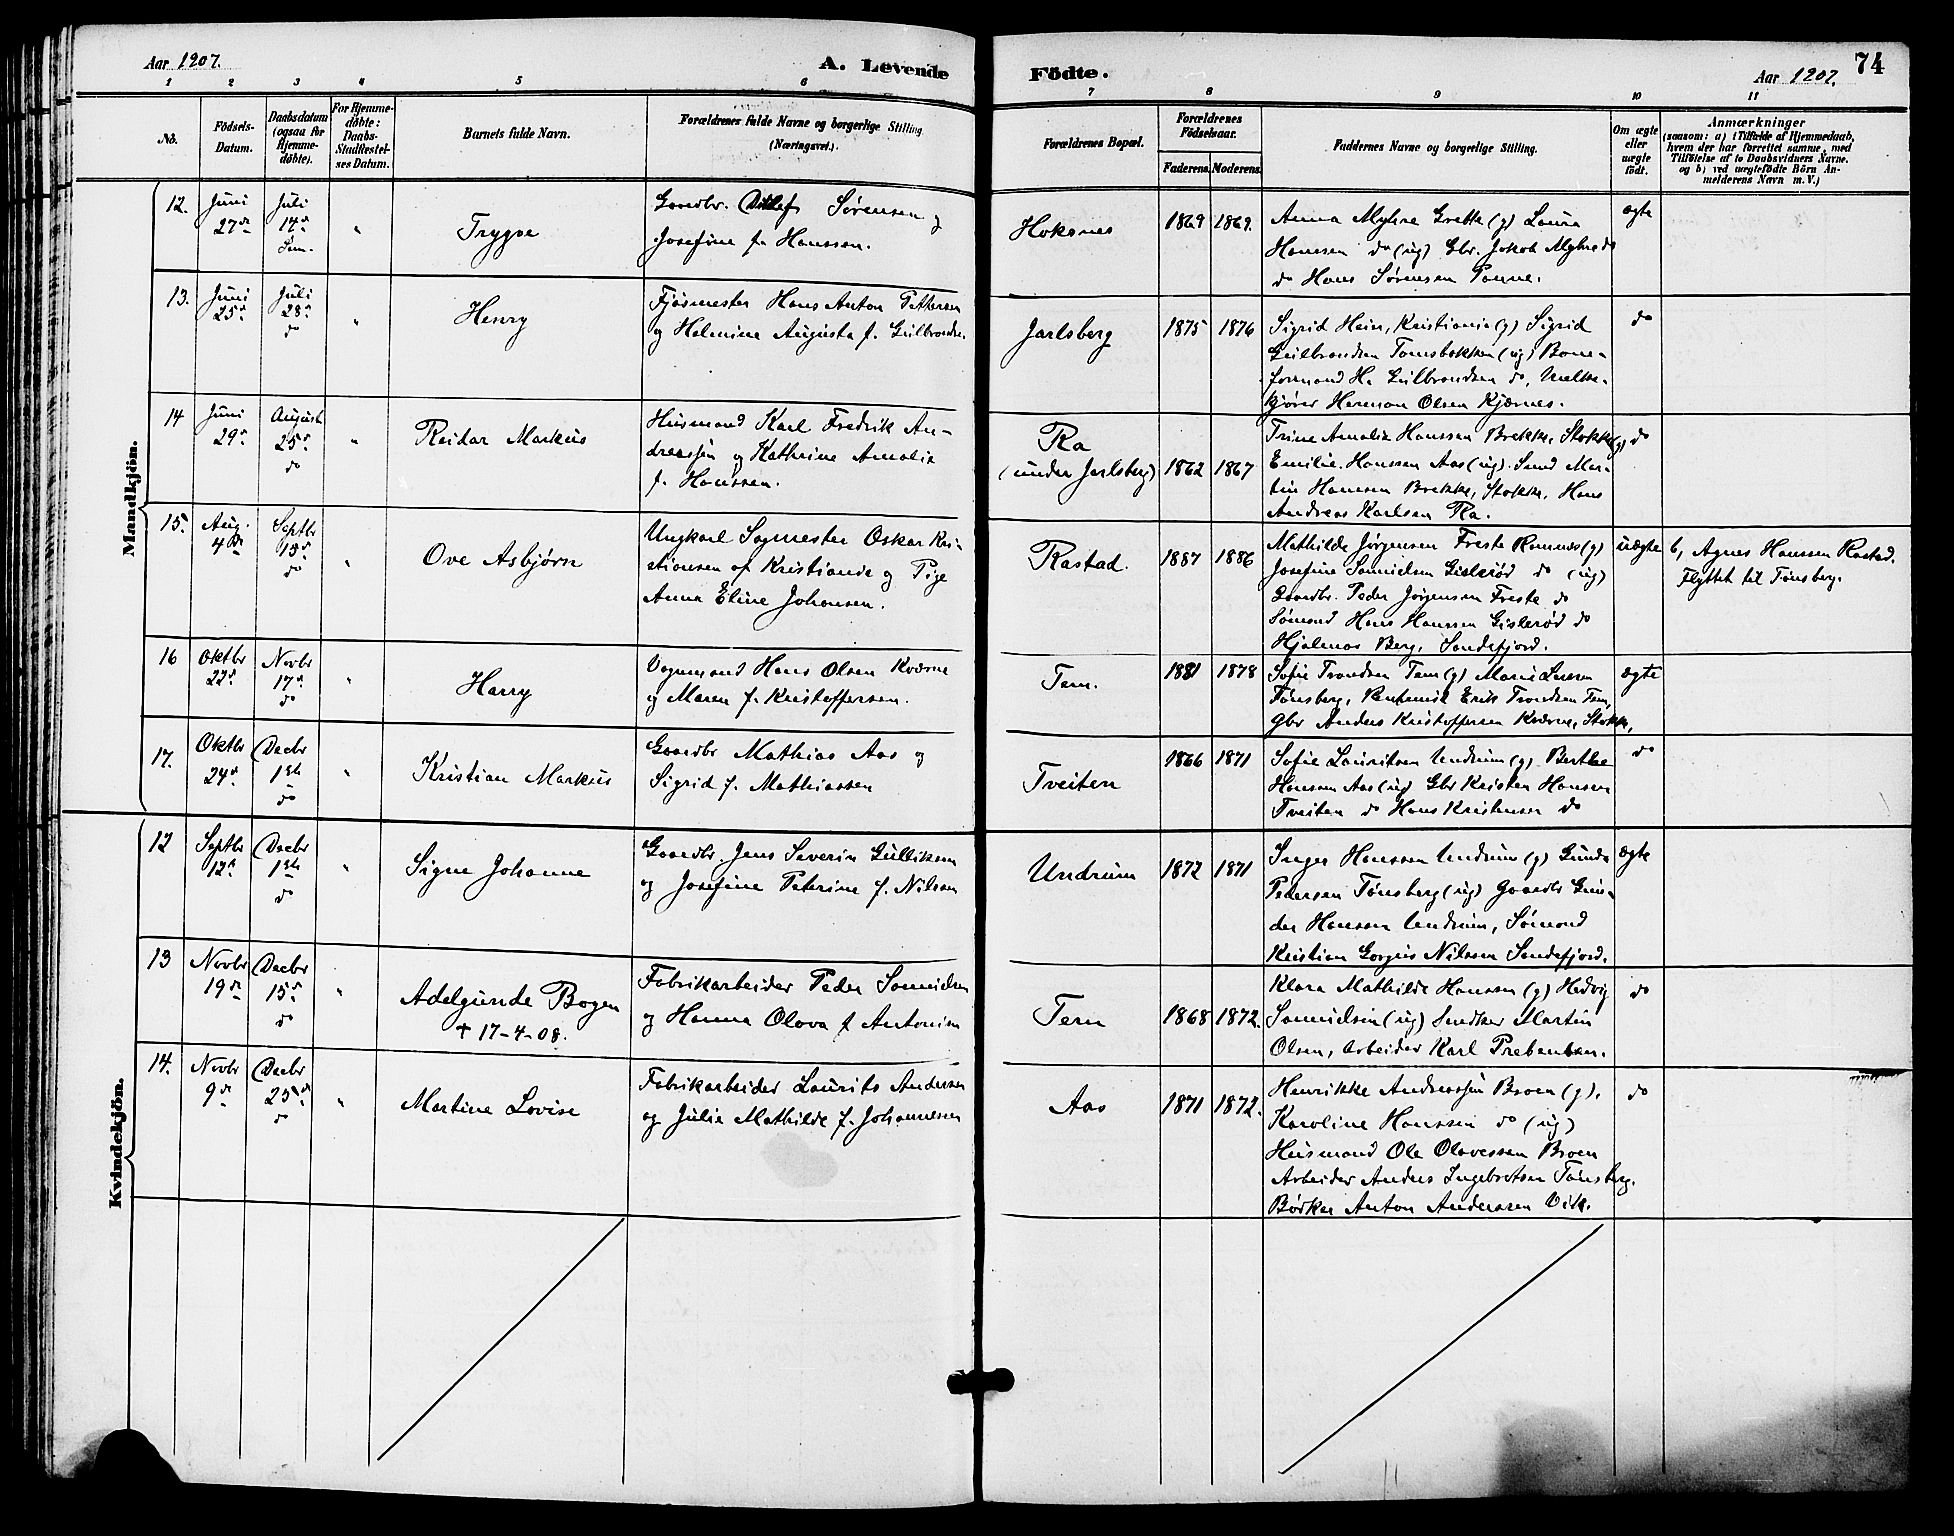 Aar 1907.
A. Levende
Födte.
Aar 1907.
74
1 2 3 4 5 6 7 8 9 10 11
No.
Födsels-
Datum.
Daabsdatum
(ogsaa for
Hjemme-
døbte).
For Hjemme-
døbte:
Daabs-
Stadfæstel-
ses Datum.
Barnets fulde Navn.
Forældrenes fulde Navne og borgerlige Stilling
(Næringsvei.).
Forældrenes Bopæl.
Forældrenes
Födselsaar.
Faderens. Moderens.
Faddernes Navne og borgerlige Stilling.
Om ægte
eller
uægte
født.
Anmærkninger
(saasom: a) i Tilfælde af Hjemmedaab,
hvem der har forrettet samme, med
Tilføielse af to Daabsvidners Navne.
og b) ved uægtefødte Börn An-
melderens Navn m. V.)
Mandkjön.
12.
Juni
27de
Juli
14de
Sem.
"
Trygve
Gaardbr. Ditlef Sørensen og
Josefine f. Hanssen.
Hoksnes
1869 1869.
Anna Myhre Grette (g) Laura
Hanssen do (ug) Gbr. Jakob Myhre do
do Hans Sørensen
ægte
13.
Juni
25de
Juli
28de
do
"
Henry
Fjøsmester Hans Anton Pettersen
og Helmine Augusta f. Gulbrandsen.
Jarlsberg
1875 1876
Sigrid Hein, Kristiania (g) Sigrid
Gulbrandsen Tomsbakken (ug) Bane-
formand H. Gulbrandsen do, Melke-
kjører Herman Olsen Kjærnes.
do
14
Juni
29de
August
25de
do
"
Reidar Markus
Husmand Karl Fredrik An-
dreassen og Kathrine Amalie
f. Hanssen.
Ra
(under Jarlsberg)
1862 1867
Trine Amalie Hanssen Brekke, Stokke (g)
Emilie Hanssen Aas (ug). Smed Mar-
tin Hansen Brekke, Stokke. Hans
Andreas Karlsen Ra.
do
15.
Aug.
4de
Septbr
15de
do
"
Ove Asbjørn
Ungkarl Sagmester Oskar Kri-
stiansen af Kristiania og Pige
Anna Eline Johansen.
Rastad.
1887 1886
Mathilde Jørgensen Freste Ramnes (g)
Josefine Samuelsen Gislerød do (ug)
Gaardbr. Peder Jørgensen Freste do
Sømand Hans Hanssen Gislerød do
Hjalmar Berg, Sandefjord.
uægte
b, Agnes Hanssen Rastad.
Flyttet til Tønsberg.
16
Oktbr
22de
Novbr
17de
do
"
Harry
Vognmand Hans Olsen Kværne
og Maren f. Kristoffersen.
Tem.
1881 1878
Sofie Trondsen Tem (g) Marie Larsen
Tønsberg, Erik Trondsen Tem,
Gbr Anders Kristoffersen Kværne, Stokke,
ægte
17.
Oktbr
24de
Decbr
1ste
do
"
Kristian Markus
Gaardbr Mathias Aas og
Sigrid f. Mathiassen
Tveiten
1866 1871
Sofie Lauritsen Undrum (g). Berthe
Hanssen Aas (ug) Gbr Kristen Hansen
Tveiten do Hans Kristensen do
do
Kvindekjön.
12
Septbr
12te
Decbr
1ste
do
"
Signe Johanne
Gaardbr. Jens Severin Gulliksen
og Josefine Peterine f. Nilsen
Undrum
1872 1871
Inger Hanssen Undrum (g) Gunda
Pedersen Tønsberg (ug) Gaardbr Gun-
der Hanssen Undrum, Sømand
Kristian Gorgus Nilssen Sandefjord.
ægte
13
Novbr
19de
Decbr
15de
do
"
Adelgunde Bogen
† 17-4-08.
Fabrikarbeider Peder Samuelsen
og Hanna Olava f Antonisen
Tem
1868 1872.
Klara Mathilde Hanssen (g) Hedvig
Samuelsen (ug) Martin
Olsen, Arbeider Karl Prebensen.
do
14.
Novbr
9de
Decbr
25de
do
"
Martine Lovise
Fabrikarbeider Laurits Andersen
og Julie Mathilde f. Johannesen
Aas
1871 1872.
Henrikke Andreassen Broen (g).
Karoline Hanssen do (ug)
Husmand Ole Olavessen Broen
Arbeider Anders Ingebretsen Tønsberg.
Bødker Anton Anderssen Vik.
do